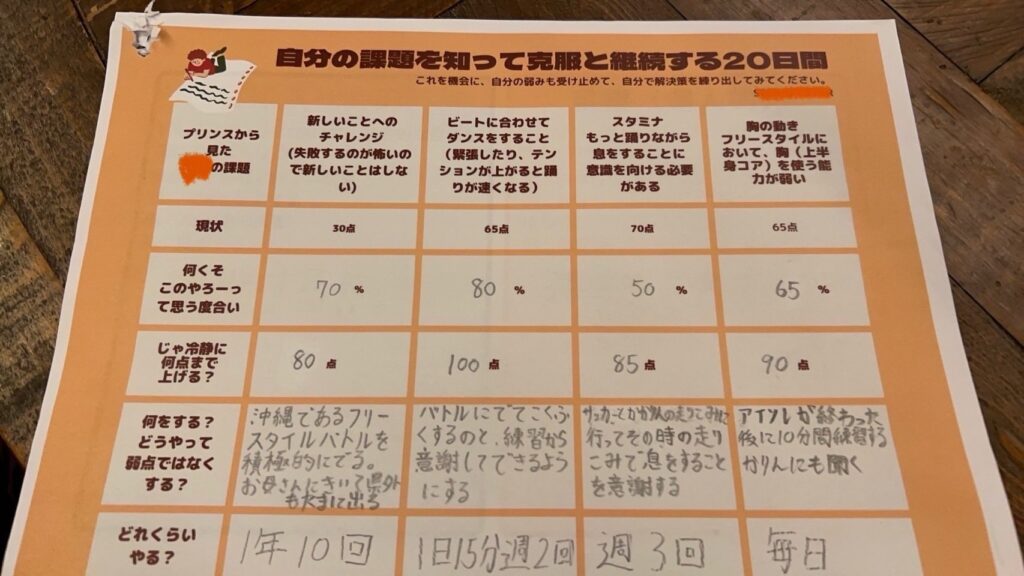 自分の課題を知って克服と継続する20日間
これを機会に、自分の弱みも受け止めて、自分で解決策を練り出してみてください。
プリンスから
見た
の課題
新しいことへの
チャレンジ
(失敗するのが怖いの
で新しいことはしな
い)
ビートに合わせて
ダンスをすること
(緊張したり、テン
ションが上がると踊
りが速くなる)
スタミナ
もっと踊りながら
息をすることに
意識を向ける必要
がある
胸の動き
フリースタイルに
おいて、胸(上半
身コア)を使う能
力が弱い
現状
30点
65点
70点
65点
何くそ
このやろーっ
て思う度合い
70 %
80 %
50 %
65 %
じゃ冷静に
何点まで
上げる?
80 点
100 点
85 点
90 点
何をする?
どうやって
弱点ではなく
する?
沖縄であるフリー
スタイルバトルを
積極的にでる。
お母さんにきいて県外
も大まに出る
バトルにでてこくふ
くするのと、練習から
意謝してできるよう
にする
サッカー
行ってその時の走り
こみで息をすること
を意謝する
アイソレが終わった
後に10分間練習する
かりんにも聞く
どれくらい
やる?
1年10回
1日15分週2回
週3回
毎日